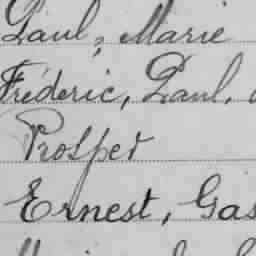 Paul, Marie
Fréderic, Paul,
Prosper
Ernest, Gas